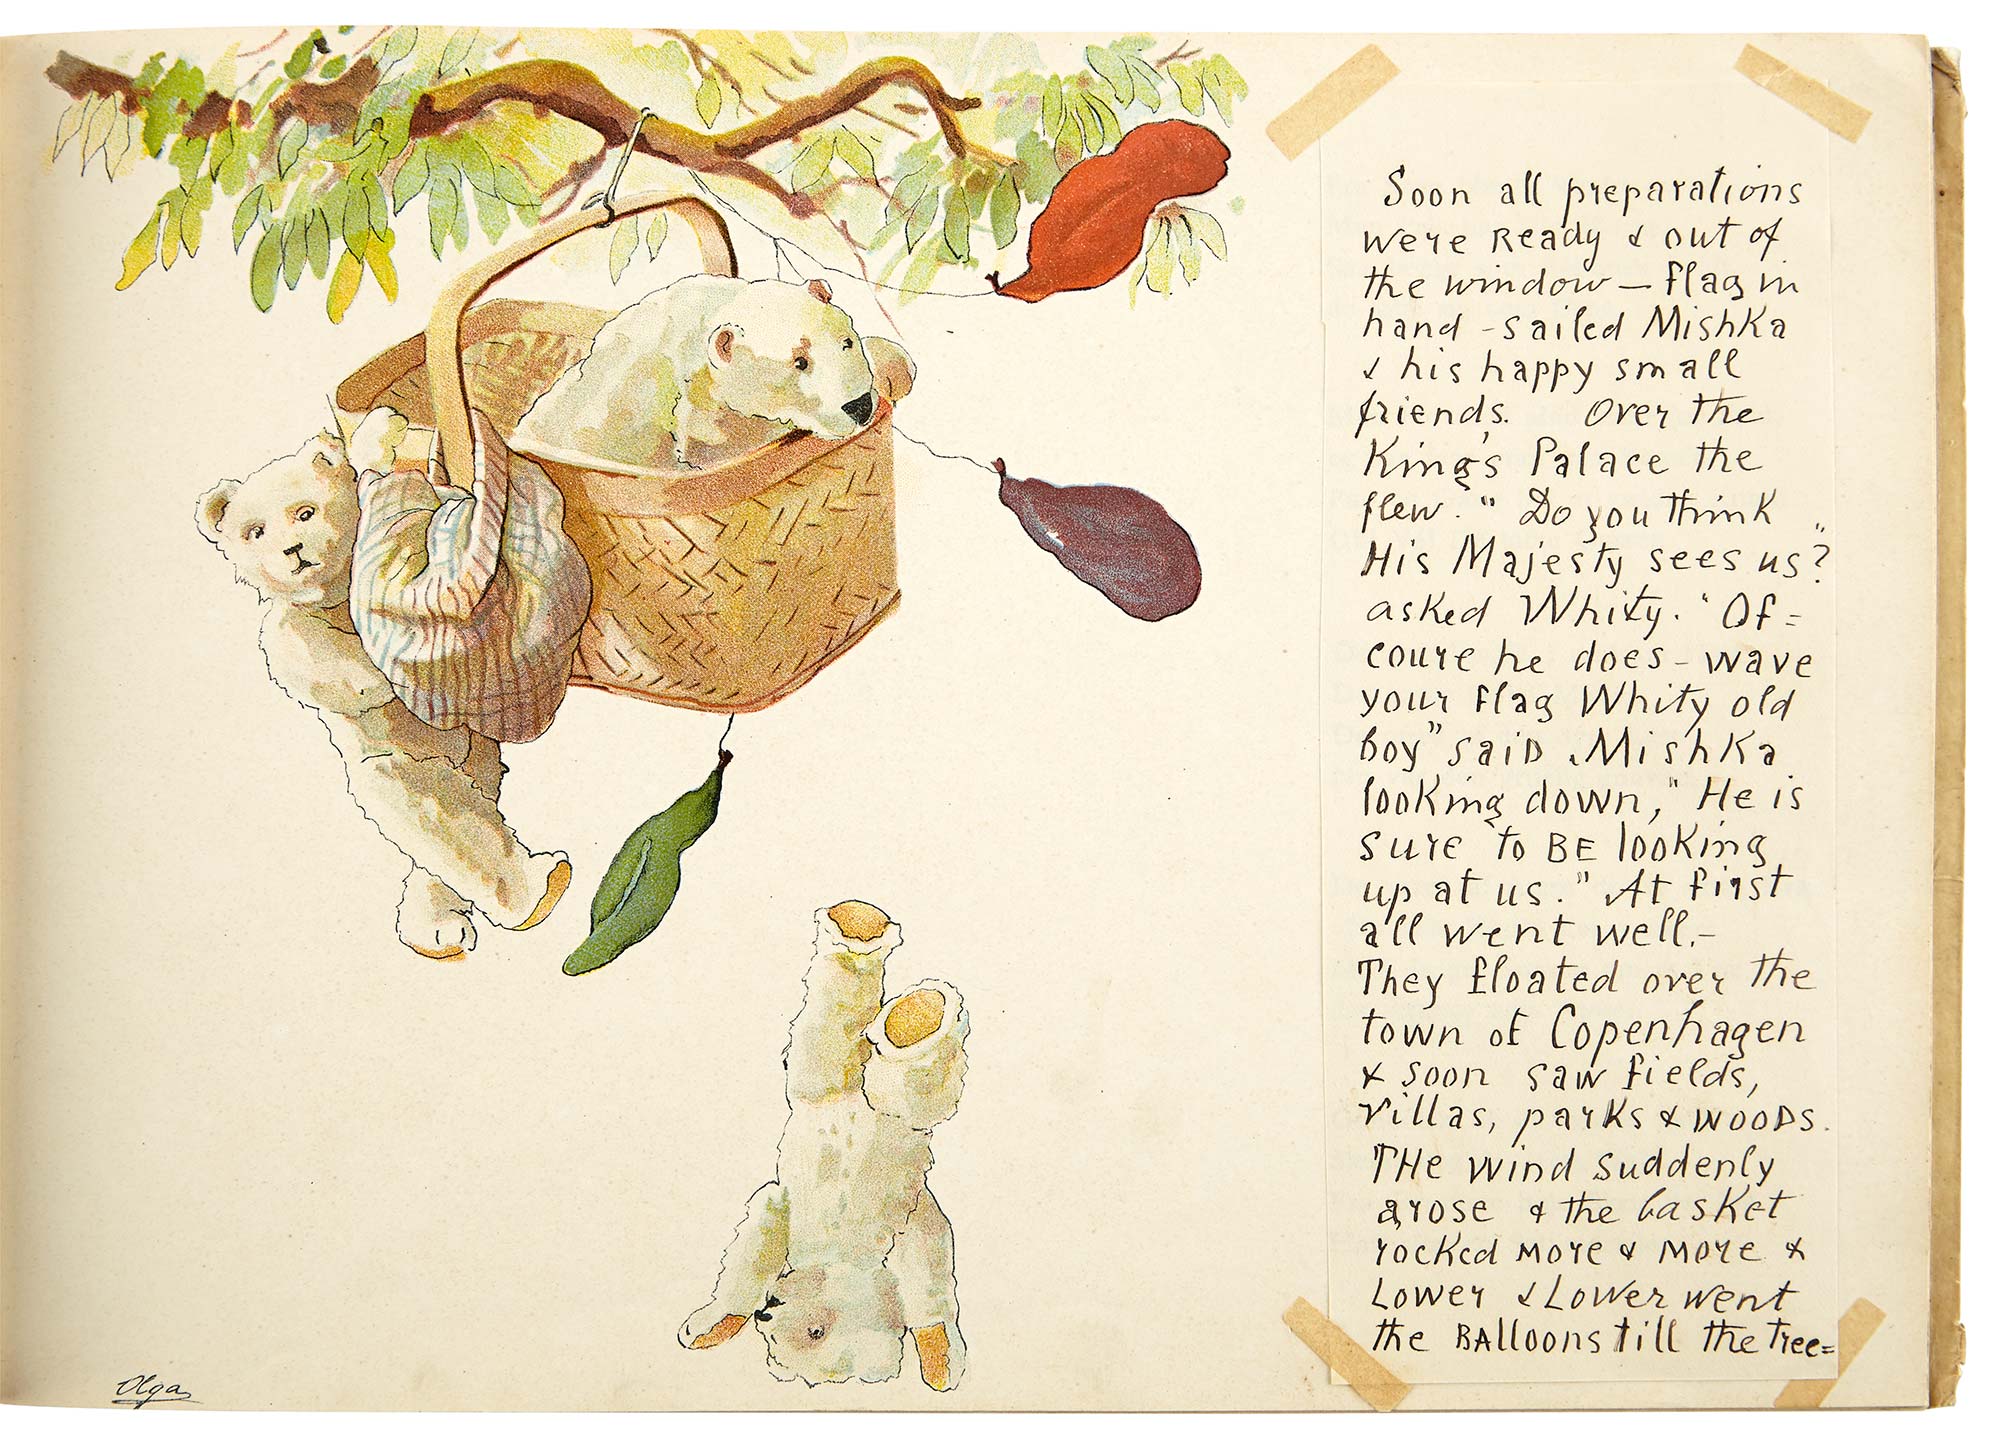 Soon all preparations
were Ready & out of
the window — flag in
hand - sailed Mishka
& his happy small
friends. Over the
King's Palace the
flew. " Do you think
His Majesty sees us?"
asked Whity. "Of=
coure he does - wave
your flag Whity old
boy" said Mishka
looking down, "He is
sure to BE looking
up at us." At first
all went well.-
They floated over the
town of Copenhagen
& soon saw fields,
villas, parks & WOODS.
THe wind suddenly
arose & the basket
rocked more & more &
Lower & Lower went
the BAlloons till the tree=
Olga